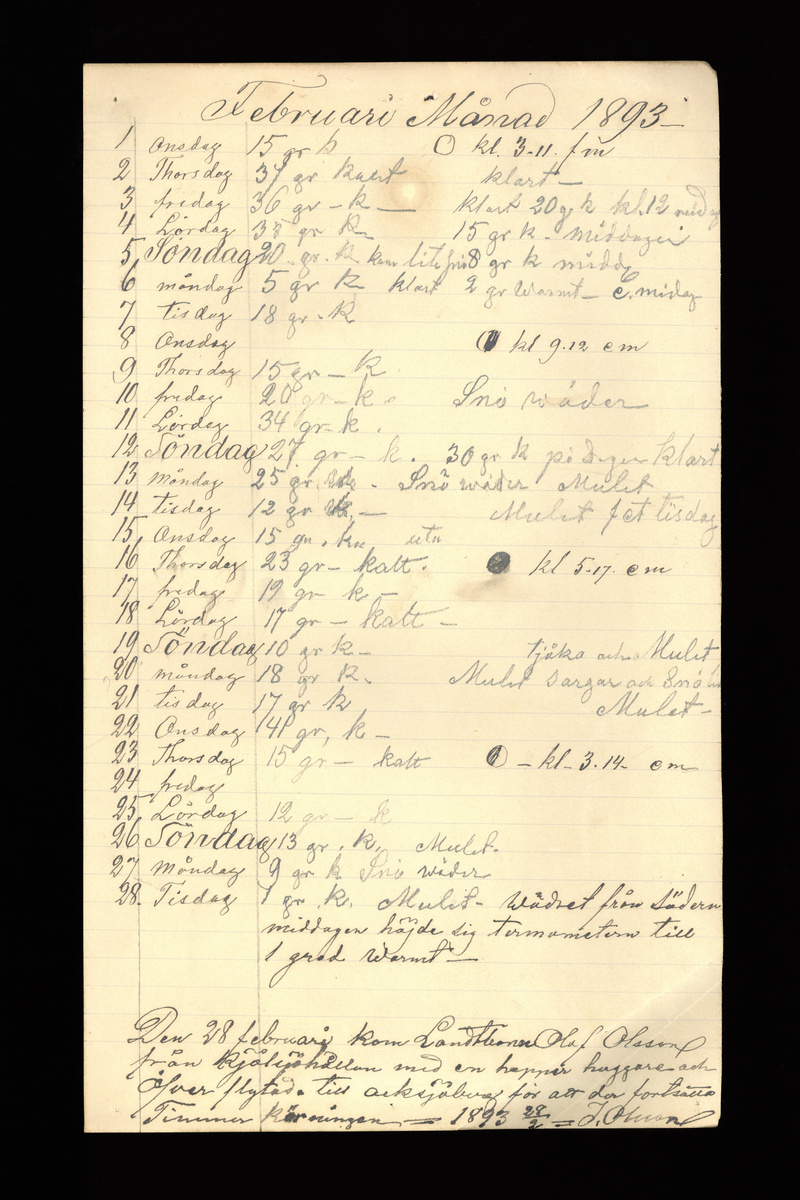 Februari Månad 1893
1 Onsdag 15 gr k kl. 3-11. fm
2 Thorsdag 37 gr kallt klart
3 fredag 36 gr - k - klart 20 gr k kl. 12 middag
4 Lördag 35 gr k 15 gr k - middagen
5 Söndag 20 gr. k kom lite snö 8 gr k midd
6 måndag 5 gr k klart 2 gr Warmt - E. midag
7 tisdag 18 gr. k
8 Onsdag kl 9.12 em
9 Thorsdag 15 gr - k
10 fredag 20 gr - k. Snö wäder
11 Lördag 34 gr - k.
12 Söndag 27 gr - k. 30 gr k på dagen klart
13 måndag 25 gr - Snö wäder Mulet
14 tisdag 12 gr - Mulet fet tisdag
15 Onsdag 15 gr.
16 Thorsdag 23 gr - kalt. kl 5-17. em
17 fredag 19 gr - k -
18 Lördag 17 gr - kalt -
19 Söndag 10 gr k - tjöka och Mulet
20 måndag 18 gr k. Mulet och Snö
21 tisdag 17 gr k Mulet -
22 Onsdag 14 gr, k -
23 Thorsdag 15 gr - kalt - kl - 3.14 - em
24 fredag
25 Lördag 12 gr - k
26 Söndag 13 gr. k. Mulet.
27 Måndag 9 gr k Snö wäder
28. Tisdag 1 gr. k. Mulet - Wädret från södern
middagen höjde sig termometern till
1 grad Warmt -
Den 28 februari kom Olof Olsson
från med en huggare och
Öfver flytade till acksjöberg för att der fortsätta
Timmer körningen = 1893 28/2 =